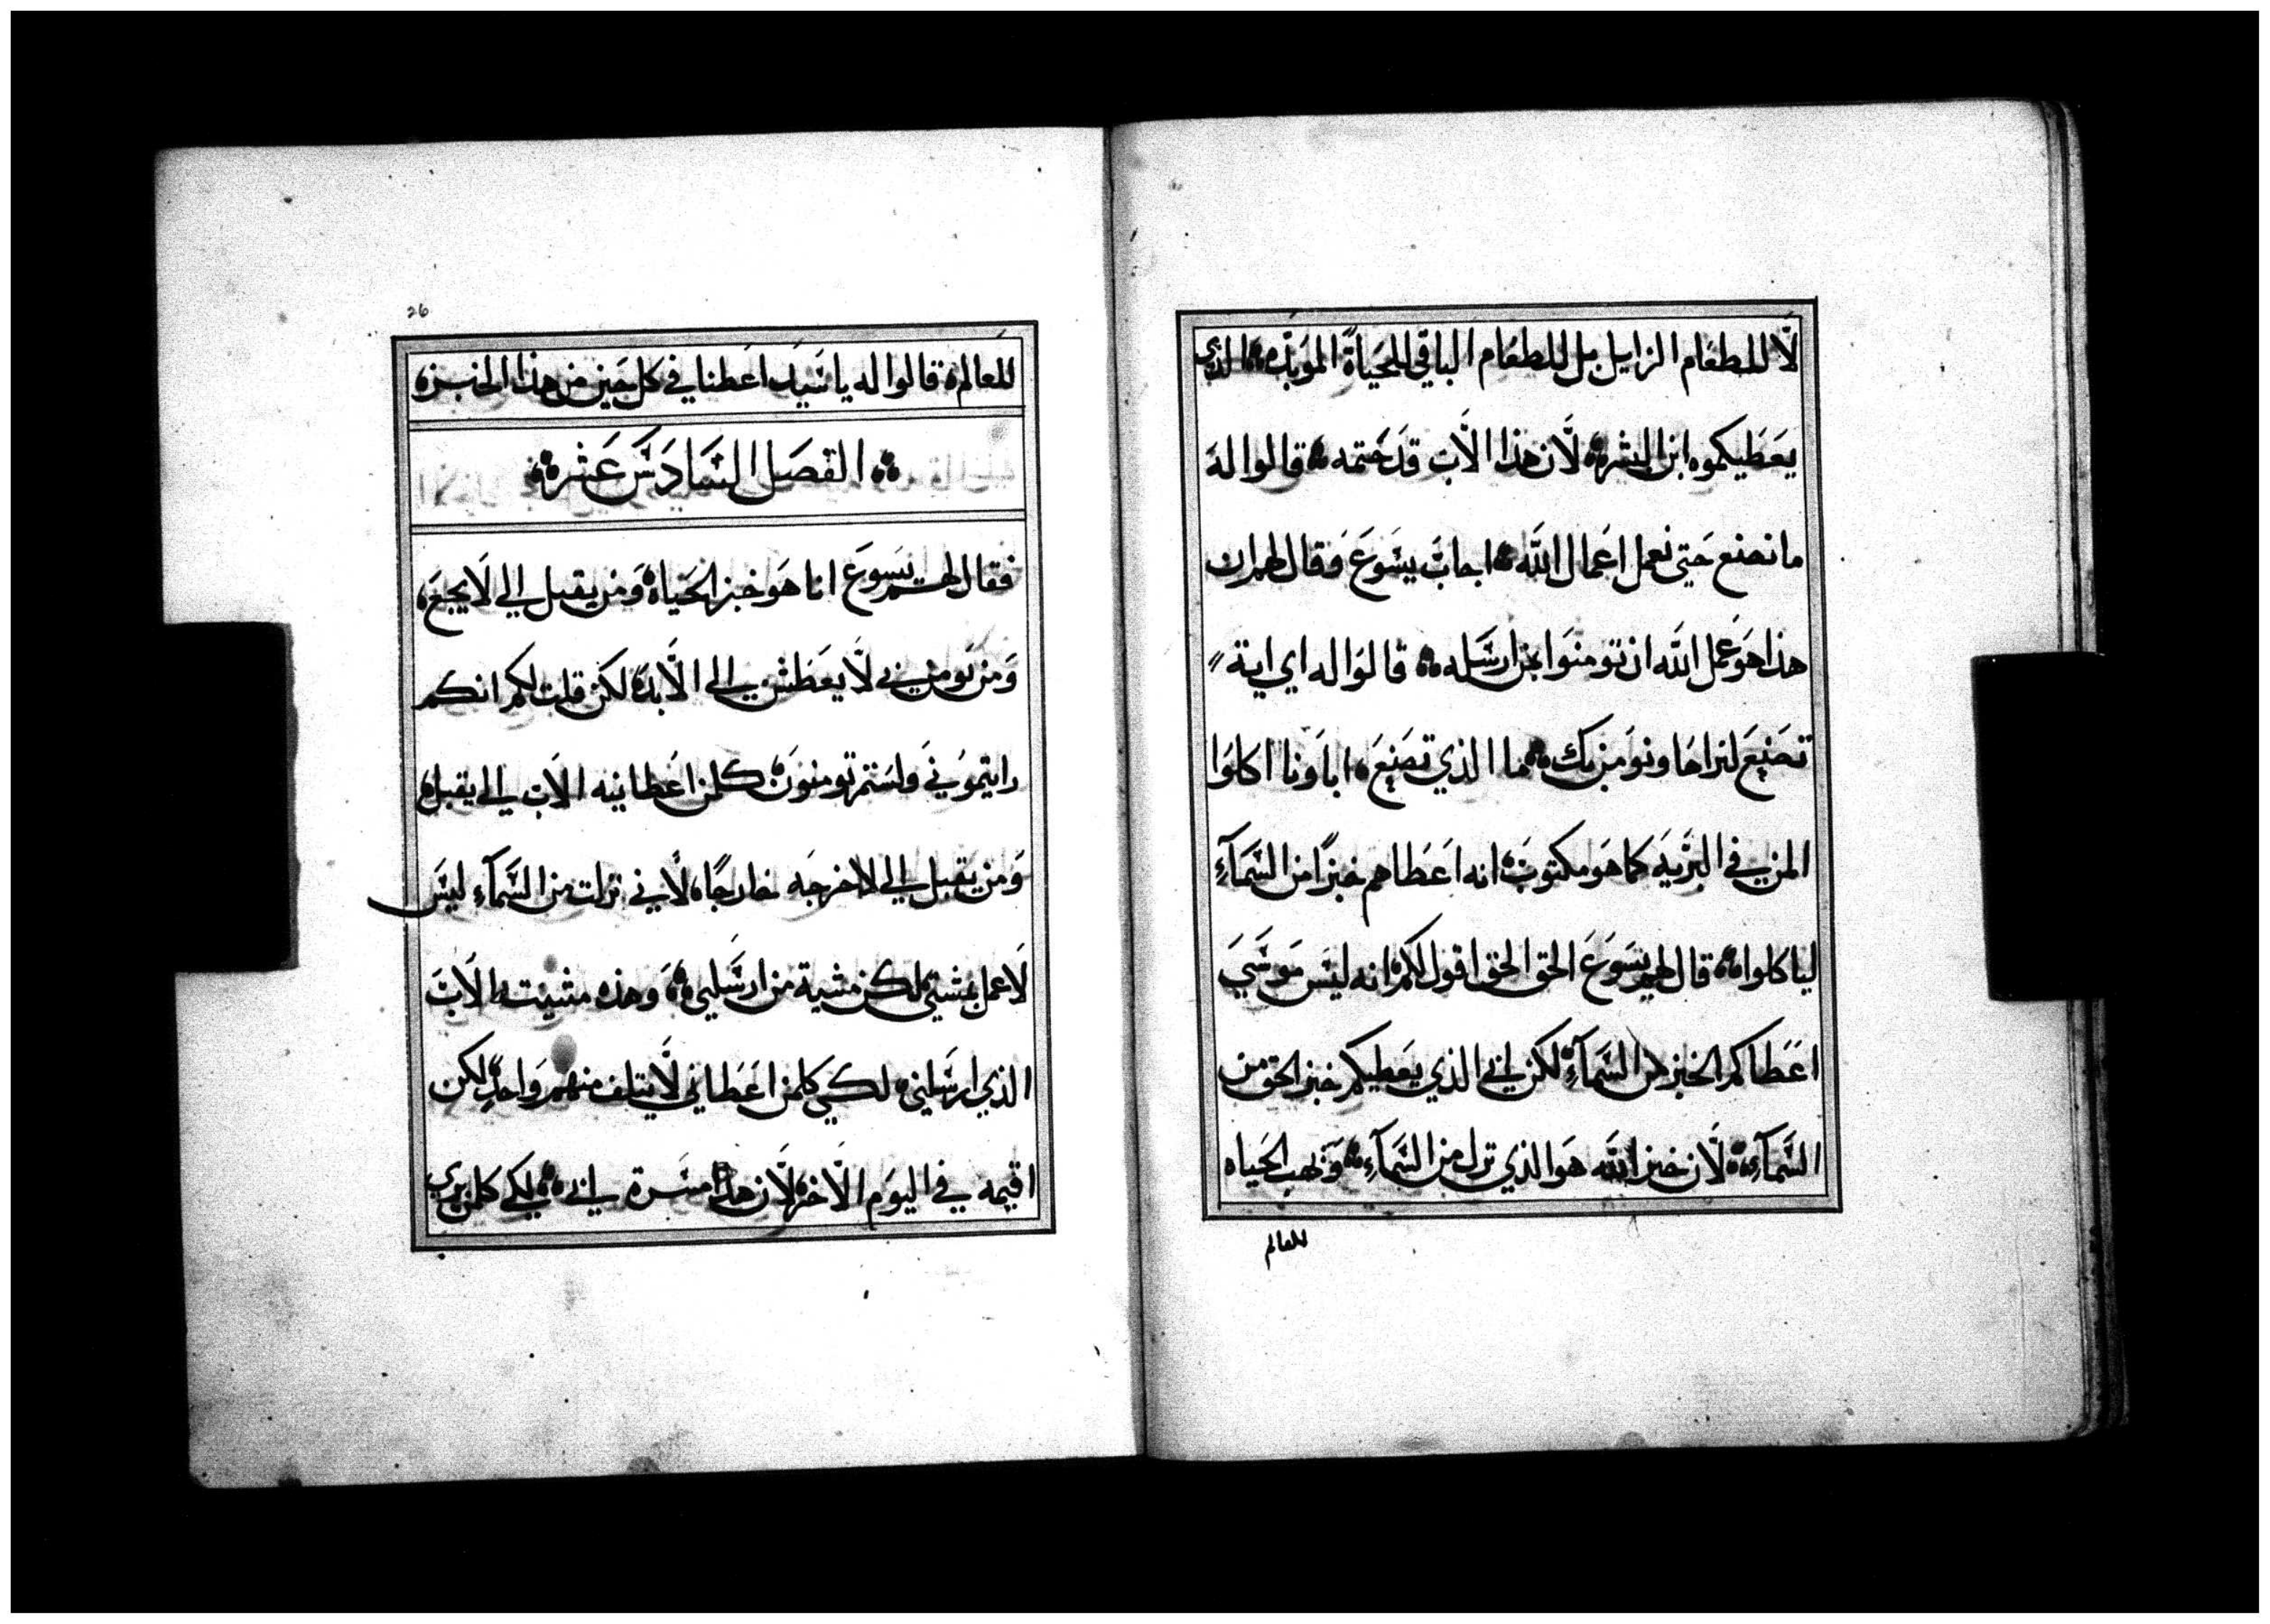 لا للطعام الزايل بل للطعام الباقي للحياة الموبده الذي
يعطيكموه ابن البشر لان هذا الاب قد ختمه قالوا له
ما نصنع حتي نعمل اعمال الله اجاب يسوع وقال لهم ان
هذا هو عمل الله ان تومنوا بمن ارسله قالوا له اي اية
تصنع لنراها ونومن بك ما الذي تصنع اباونا اكلوا
المن في البريه كما هو مكتوب انه اعطاهم خبزًا من السمآء
لياكلوا قال لهم يسوع الحق الحق اقول لكم انه ليس موسي
اعطاكم الخبز من السمآء لكن ابي الذي يعطيكم خبز الحق من
السمآء لان خبز الله هو الذي نزل من السمآء ويهب الحياه
للعالم
26
للعالم قالوا له يا سيد اعطنا في كل حين من هذا الخبز
الفصل السادس عشر
فقال لهم يسوع انا هو خبز الحياة ومن يقبل الي لا يجع
ومن يومن بي لا يعطش الي الابد لكن قلت لكم انكم
رايتموني ولستم تومنون كلمن اعطانيه الاب الي يقبل
ومن يقبل الي لا اخرجه خارجًا لاني نزلت من السمآء ليس
لاعمل بمشيتي لكن مشية من ارسلني وهذه مشيت الاب
الذي ارسلني لكي كلمن اعطاني لا يتلف منهم واحد لكن
اقيمه في اليوم الاخر لان هذا مسرة ابي لكي كلمن يري